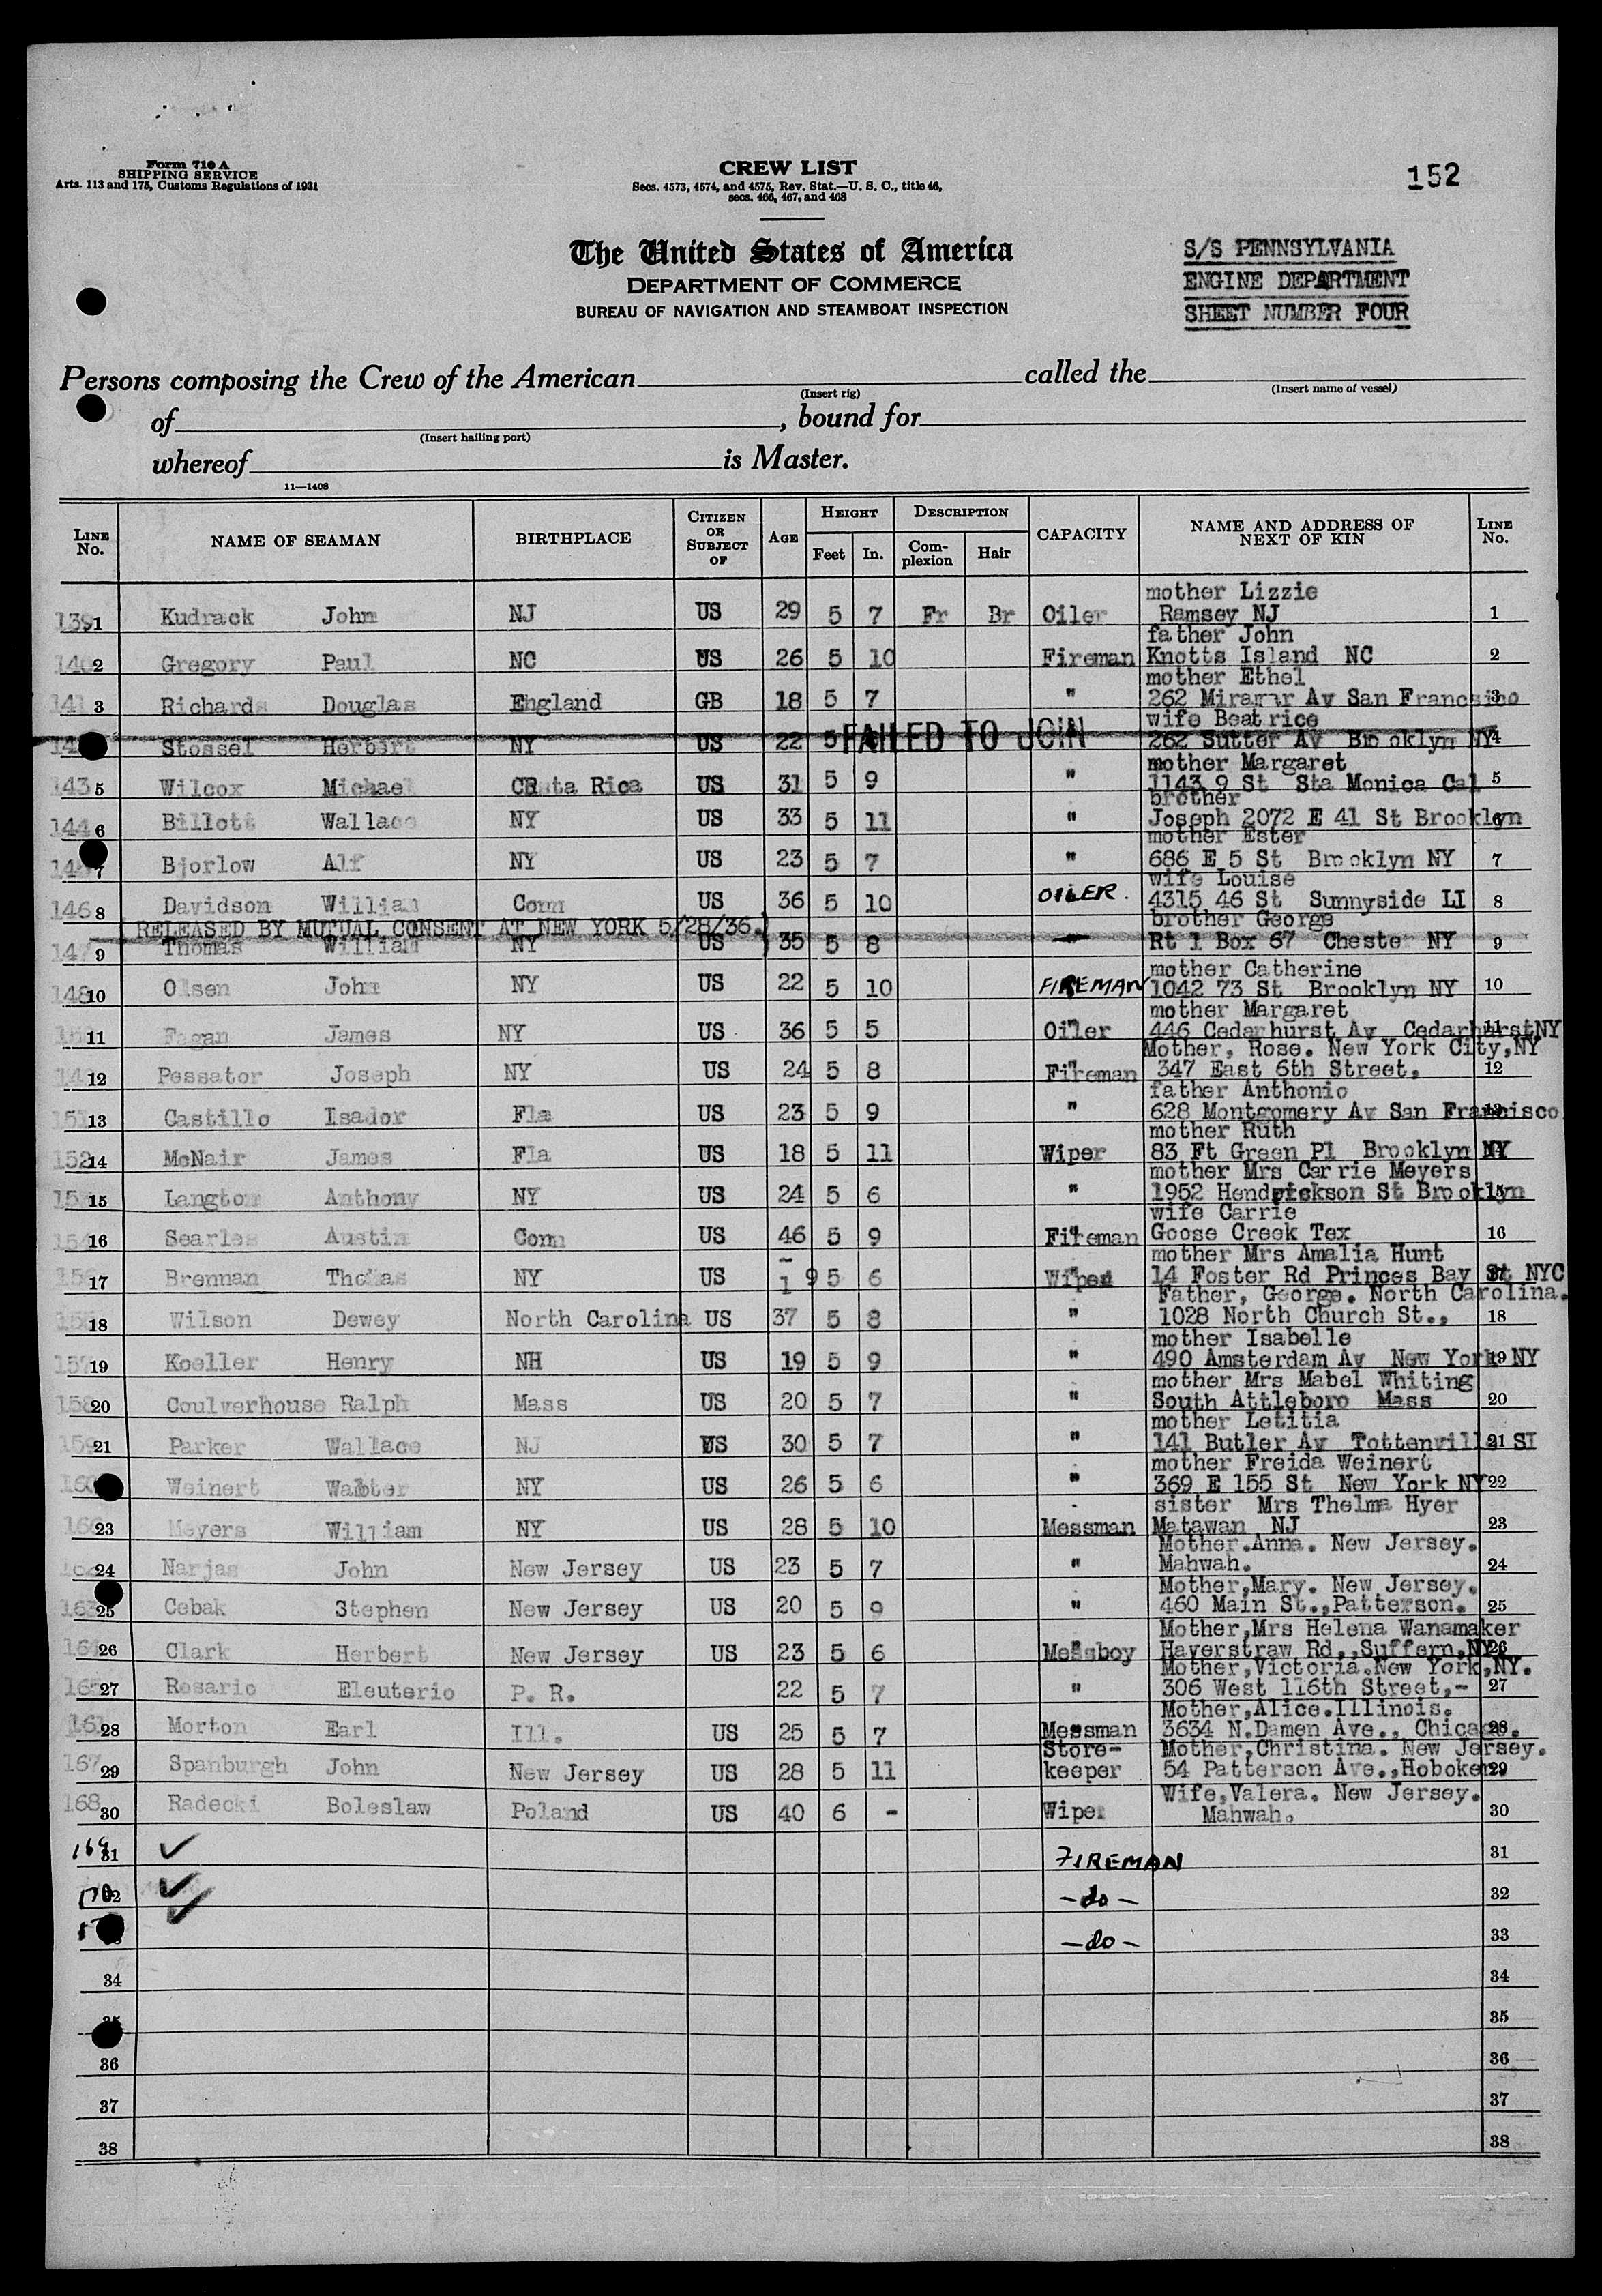 Form 710 A
SHIPPING SERVICE
Arts. 113 and 175, Customs Regulations of 1931
CREW LIST
Secs. 4573, 4574, and 4575, Rev. Stat.—U. S. C., title 46,
secs. 466, 467, and 468
152
The United States of America
DEPARTMENT OF COMMERCE
BUREAU OF NAVIGATION AND STEAMBOAT INSPECTION
S/S PENNSYLVANIA
ENGINE DEPARTMENT
SHEET NUMBER FOUR
Persons composing the Crew of the American called the
(Insert rig) (Insert name of vessel)
of , bound for
(Insert hailing port)
whereof is Master.
11—1408
LINE No. NAME OF SEAMAN BIRTHPLACE CITIZEN OR SUBJECT OF AGE HEIGHT Feet In. DESCRIPTION Complexion Hair CAPACITY NAME AND ADDRESS OF NEXT OF KIN LINE No.
mother Lizzie
139 1 Kudrack John NJ US 29 5 7 Fr Br Oiler Ramsey NJ 1
father John
140 2 Gregory Paul NC US 26 5 10 Fireman Knotts Island NC 2
mother Ethel
141 3 Richards Douglas England GB 18 5 7 " 262 Miramar Av San Francsico 3
wife Beatrice
Stossel Herbert NY US 22 5 FAILED TO JOIN 262 Sutter Av Brooklyn NY 4
mother Margaret
143 5 Wilcox Michael Costa Rica US 31 5 9 " 1143 9 St Sta Monica Cal 5
brother
144 6 Billott Wallace NY US 33 5 11 " Joseph 2072 E 41 St Brooklyn 6
mother Ester
7 Bjorlow Alf NY US 23 5 7 " 686 E 5 St Brooklyn NY 7
wife Louise
146 8 Davidson William Conn US 36 5 10 OILER. 4315 46 St Sunnyside LI 8
RELEASED BY MUTUAL CONSENT AT NEW YORK 5/28/36.) brother George
147 9 Thomas William NY US 35 5 8 Rt 1 Box 67 Chester NY 9
mother Catherine
148 10 Olsen John NY US 22 5 10 FIREMAN 1042 73 St Brooklyn NY 10
mother Margaret
11 Fagan James NY US 36 5 5 Oiler 446 Cedarhurst Av Cedarhurst NY 11
Mother, Rose. New York City, NY
12 Pessator Joseph NY US 24 5 8 Fireman 347 East 6th Street. 12
father Anthonio
151 13 Castillo Isador Fla US 23 5 9 " 628 Montgomery Av San Francisco 13
mother Ruth
152 14 McNair James Fla US 18 5 11 Wiper 83 Ft Green Pl Brooklyn NY
mother Mrs Carrie Meyers
15 Langton Anthony NY US 24 5 6 " 1952 Hendrickson St Brooklyn 15
wife Carrie
154 16 Searles Austin Conn US 46 5 9 Fireman Goose Creek Tex 16
mother Mrs Amalia Hunt
17 Brennan Thomas NY US 19 5 6 Wiper 14 Foster Rd Princes Bay St NYC
Father, George. North Carolina.
18 Wilson Dewey North Carolina US 37 5 8 " 1028 North Church St., 18
mother Isabelle
157 19 Koeller Henry NH US 19 5 9 " 490 Amsterdam Av New York NY 19
mother Mrs Mabel Whiting
158 20 Coulverhouse Ralph Mass US 20 5 7 " South Attleboro Mass 20
mother Letitia
159 21 Parker Wallace NJ US 30 5 7 " 141 Butler Av Tottenville SI 21
mother Freida Weinert
160 Weinert Walter NY US 26 5 6 " 369 E 155 St New York NY 22
sister Mrs Thelma Hyer
23 Meyers William NY US 28 5 10 Messman Matawan NJ 23
Mother.Anna. New Jersey.
24 Narjas John New Jersey US 23 5 7 " Mahwah. 24
Mother,Mary. New Jersey.
163 25 Cebak Stephen New Jersey US 20 5 9 " 460 Main St.,Patterson. 25
Mother,Mrs Helena Wanamaker
164 26 Clark Herbert New Jersey US 23 5 6 Messboy Haverstraw Rd.,Suffern,NY 26
Mother,Victoria.New York,NY.
165 27 Rosario Eleuterio P. R. 22 5 7 " 306 West 116th Street,- 27
Mother,Alice.Illinois.
161 28 Morton Earl Ill. US 25 5 7 Messman 3634 N.Damen Ave., Chicago. 28
Store- Mother,Christina. New Jersey.
167 29 Spanburgh John New Jersey US 28 5 11 keeper 54 Patterson Ave.,Hoboken. 29
Wife,Valera. New Jersey.
168 30 Radecki Boleslaw Poland US 40 6 - Wiper Mahwah. 30
169 31 ✓ FIREMAN 31
170 32 ✓ -do- 32
✓ -do- 33
34 34
35 35
36 36
37 37
38 38